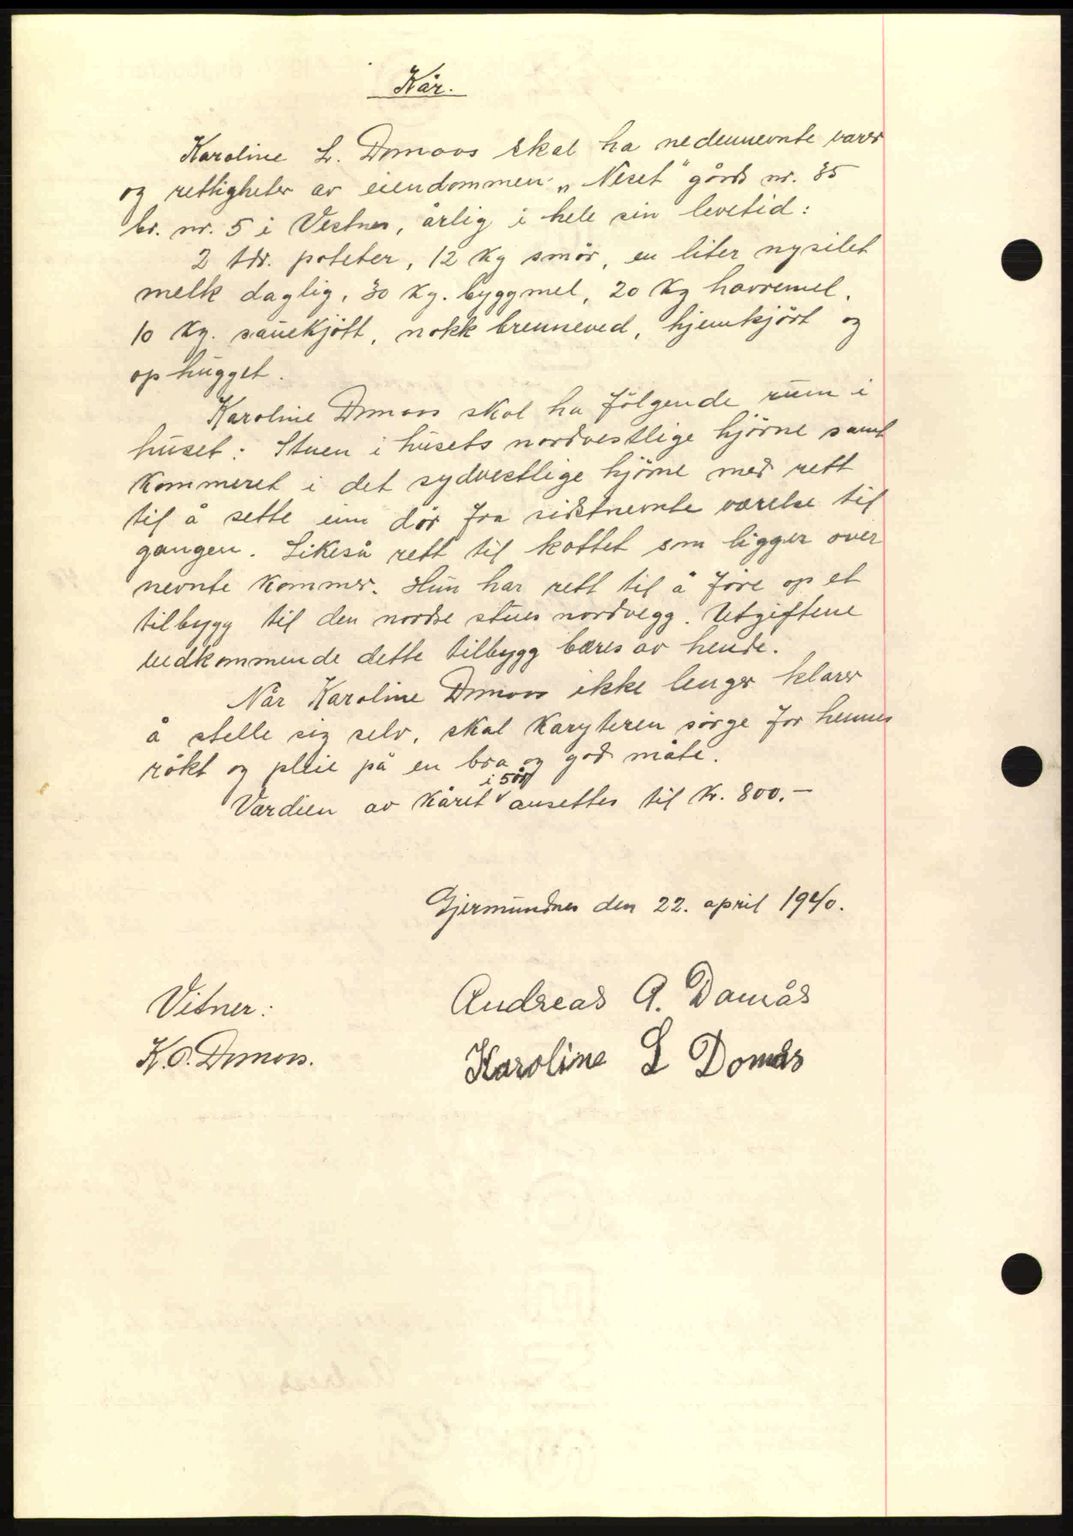 Kår.
Karoline L. Domaas skal ha nedennevnte varer
og rettigheter av eiendommen „Neset" gårds nr. 35
br. nr. 5 i Vestnes, årlig i hele sin levetid:
2 tdr. poteter, 12 kg smör, en liter nysilet
melk daglig, 30 kg. byggmel, 20 kg havremel,
10 kg. sauekjött, nokk brenneved, hjemkjört og
ophugget.
Karoline Domaas skal ha fölgende rum i
huset: Stuen i husets nordvestlige hjörne samt
kammeret i det sydvestlige hjörne med rett
til å sette inn dör fra sidstnevnte værelse til
gangen. Likeså rett til kottet som ligger over
nevnte kammer. Hun har rett til å före op et
tilbygg til den nordre stues nordvegg. Utgiftene
vedkommende dette tilbygg bæres av hende.
Når Karoline Domaas ikke lenger klarer
å stelle sig selv, skal kåryteren sörge for hennes
rökt og pleie på en bra og god måte.
Verdien av kåret i 5 år ansettes til kr. 800.-
Gjermundnes den 22. april 1940.
Vitner:
Andreas A. Damås
K. O. Domaas.
Karoline L Domås